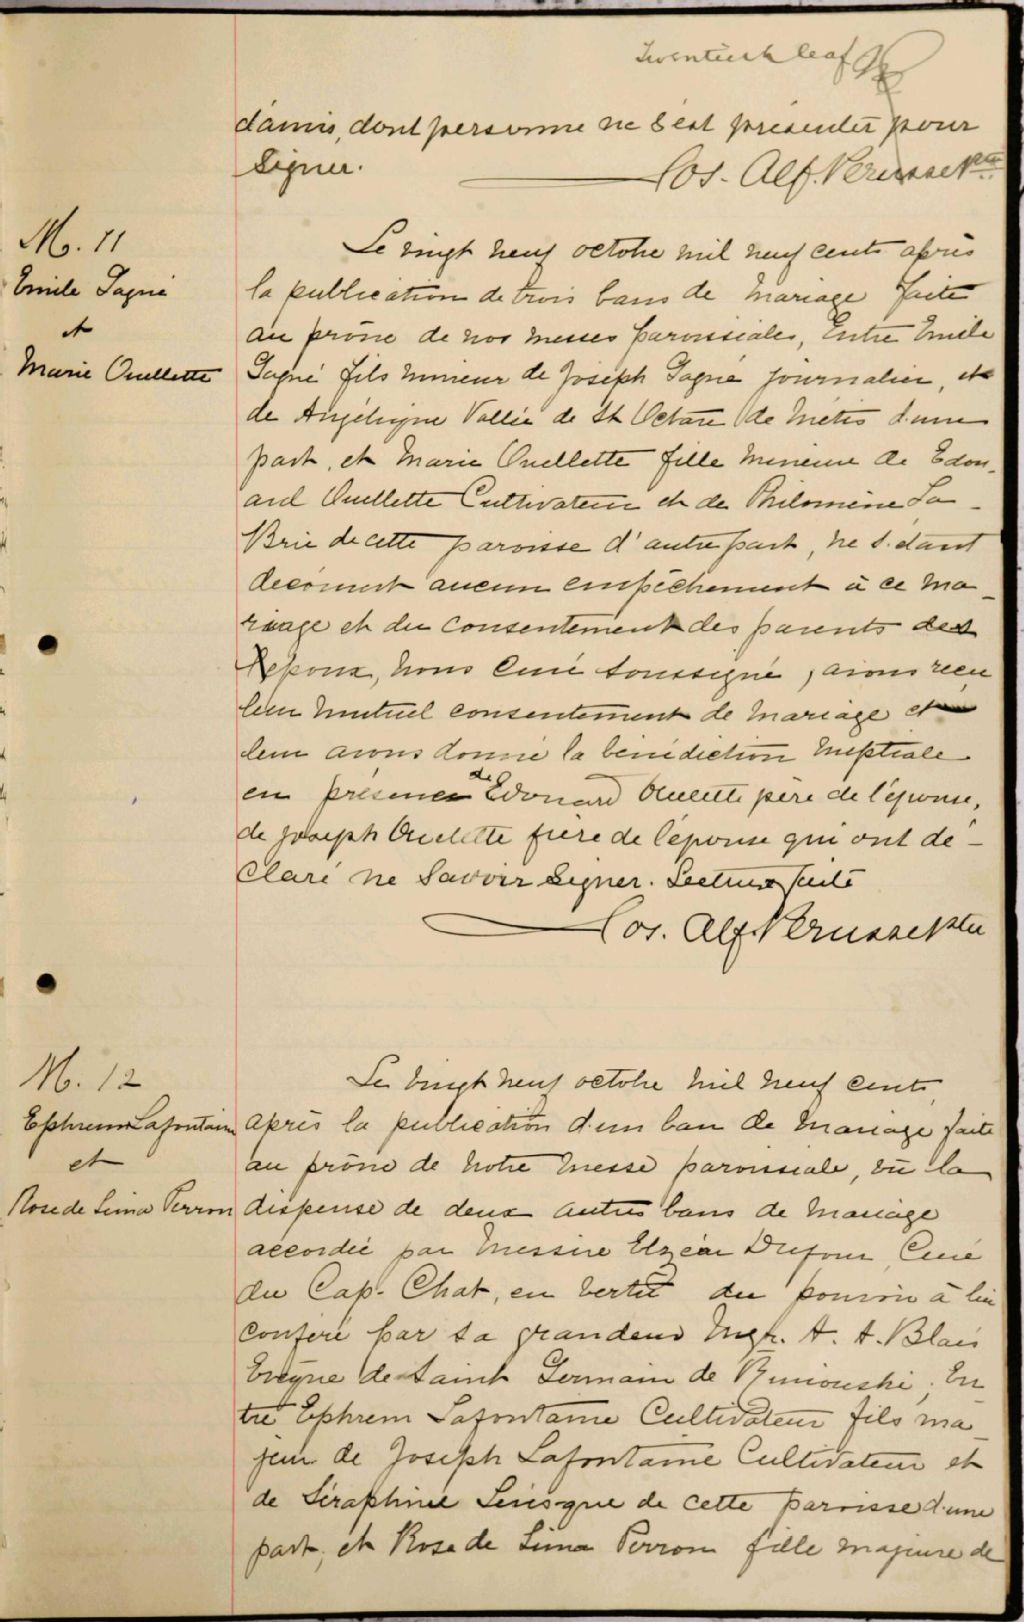 Twentieth leaf
d'amis, dont personne ne s'est présenter pour
signer. Jos. Alf. Perusse Ptre
M. 11
Emile Gagné
et
Marie Ouellette
Le vingt neuf octobre mil neuf cents après
la publication de trois bans de mariage faite
au prône de nos messes paroissiales, Entre Emile
Gagné fils mineur de Joseph Gagné journalier, et
de Angélique Vallée de St Octave de Métis d'une
part, et Marie Ouellette fille mineure de Edou-
ard Ouellette Cultivateur et de Philomène La-
Brie de cette paroisse d'autre part, ne s'étant
découvert aucun empêchement à ce ma-
riage et du consentement des parents des
époux, nous Curé soussigné, avons reçu
leur mutuel consentement de mariage et
leur avons donné la bénédiction nuptiale
en présence de Edouard Ouellette père de l'épouse,
de Joseph Ouellette frère de l'épouse qui ont dé-
claré ne savoir signer. Lecture faite
Jos. Alf. Perusse Ptre
M. 12
Ephrem Lafontaine
et
Rose de Lima Perron
Le vingt neuf octobre mil neuf cents,
après la publication d'un ban de mariage faite
au prône de notre messe paroissiale, vû la
dispense de deux autres bans de mariage
accordée par Messire Elzéar Dufour, Curé
du Cap-Chat, en vertu du pouvoir à lui
conféré par sa grandeur Mgr. A. A. Blais
Evêque de Saint Germain de Rimouski, En-
tre Ephrem Lafontaine Cultivateur fils ma-
jeur de Joseph Lafontaine Cultivateur et
de Séraphine Levesque de cette paroisse d'une
part, et Rose de Lima Perron fille majeure de